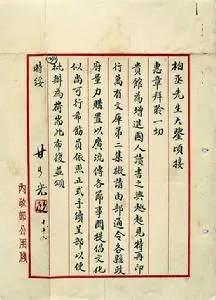 柏丞先生大鑒頃接
惠章拜聆一切
貴館為增進國人讀書之興趣起見特再印
行萬有文庫第二集擬請由部通令各縣政
府量力購置以廣流傳各節事關提倡文化
似尚可行希飭員依照正式手續呈部以便
批辦為荷耑此布復並頌
時綏 甘乃光
內政部公用牋